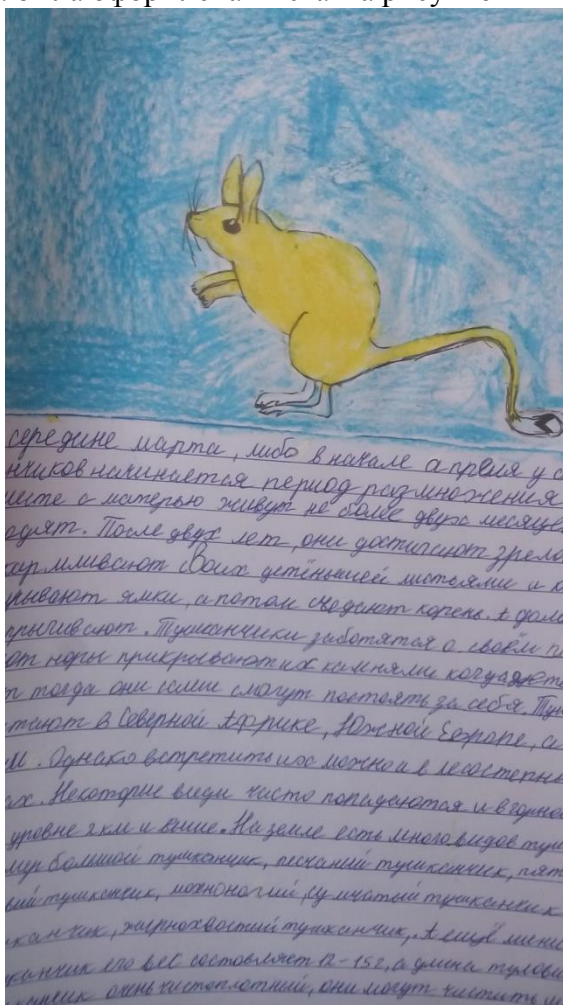 середине марта, либо в начале апреля у
нчиков начинается период размножения
месте с матерью живут не более двух месяце
одят. После двух лет, они достигают зрело
кармливают своих детёнышей листьями а
рывают ямки, а потом съедают корень. А
прыгивают. Тушканчики заботятся о своём п
от норы прикрывают их камнями когда
т тогда они сами смогут постоять за себя. Туш
тают в Северной Африке, Южной Европе, а
Однако встретить их можно и в лесостепны
ах. Некоторые виды часто попадаются и в горно
уровне 2 км и выше. На земле есть много видов туш
мер большой тушканчик, песчаний тушканчик, пят
ий тушканчик, мохноногий, сумчатый тушканчик
канчик, жирнохвостий тушканчик, А ещё мини
канчик его вес составляет 12-15г, а длина тулови
канчик очень чистоплотный, они могут чистить